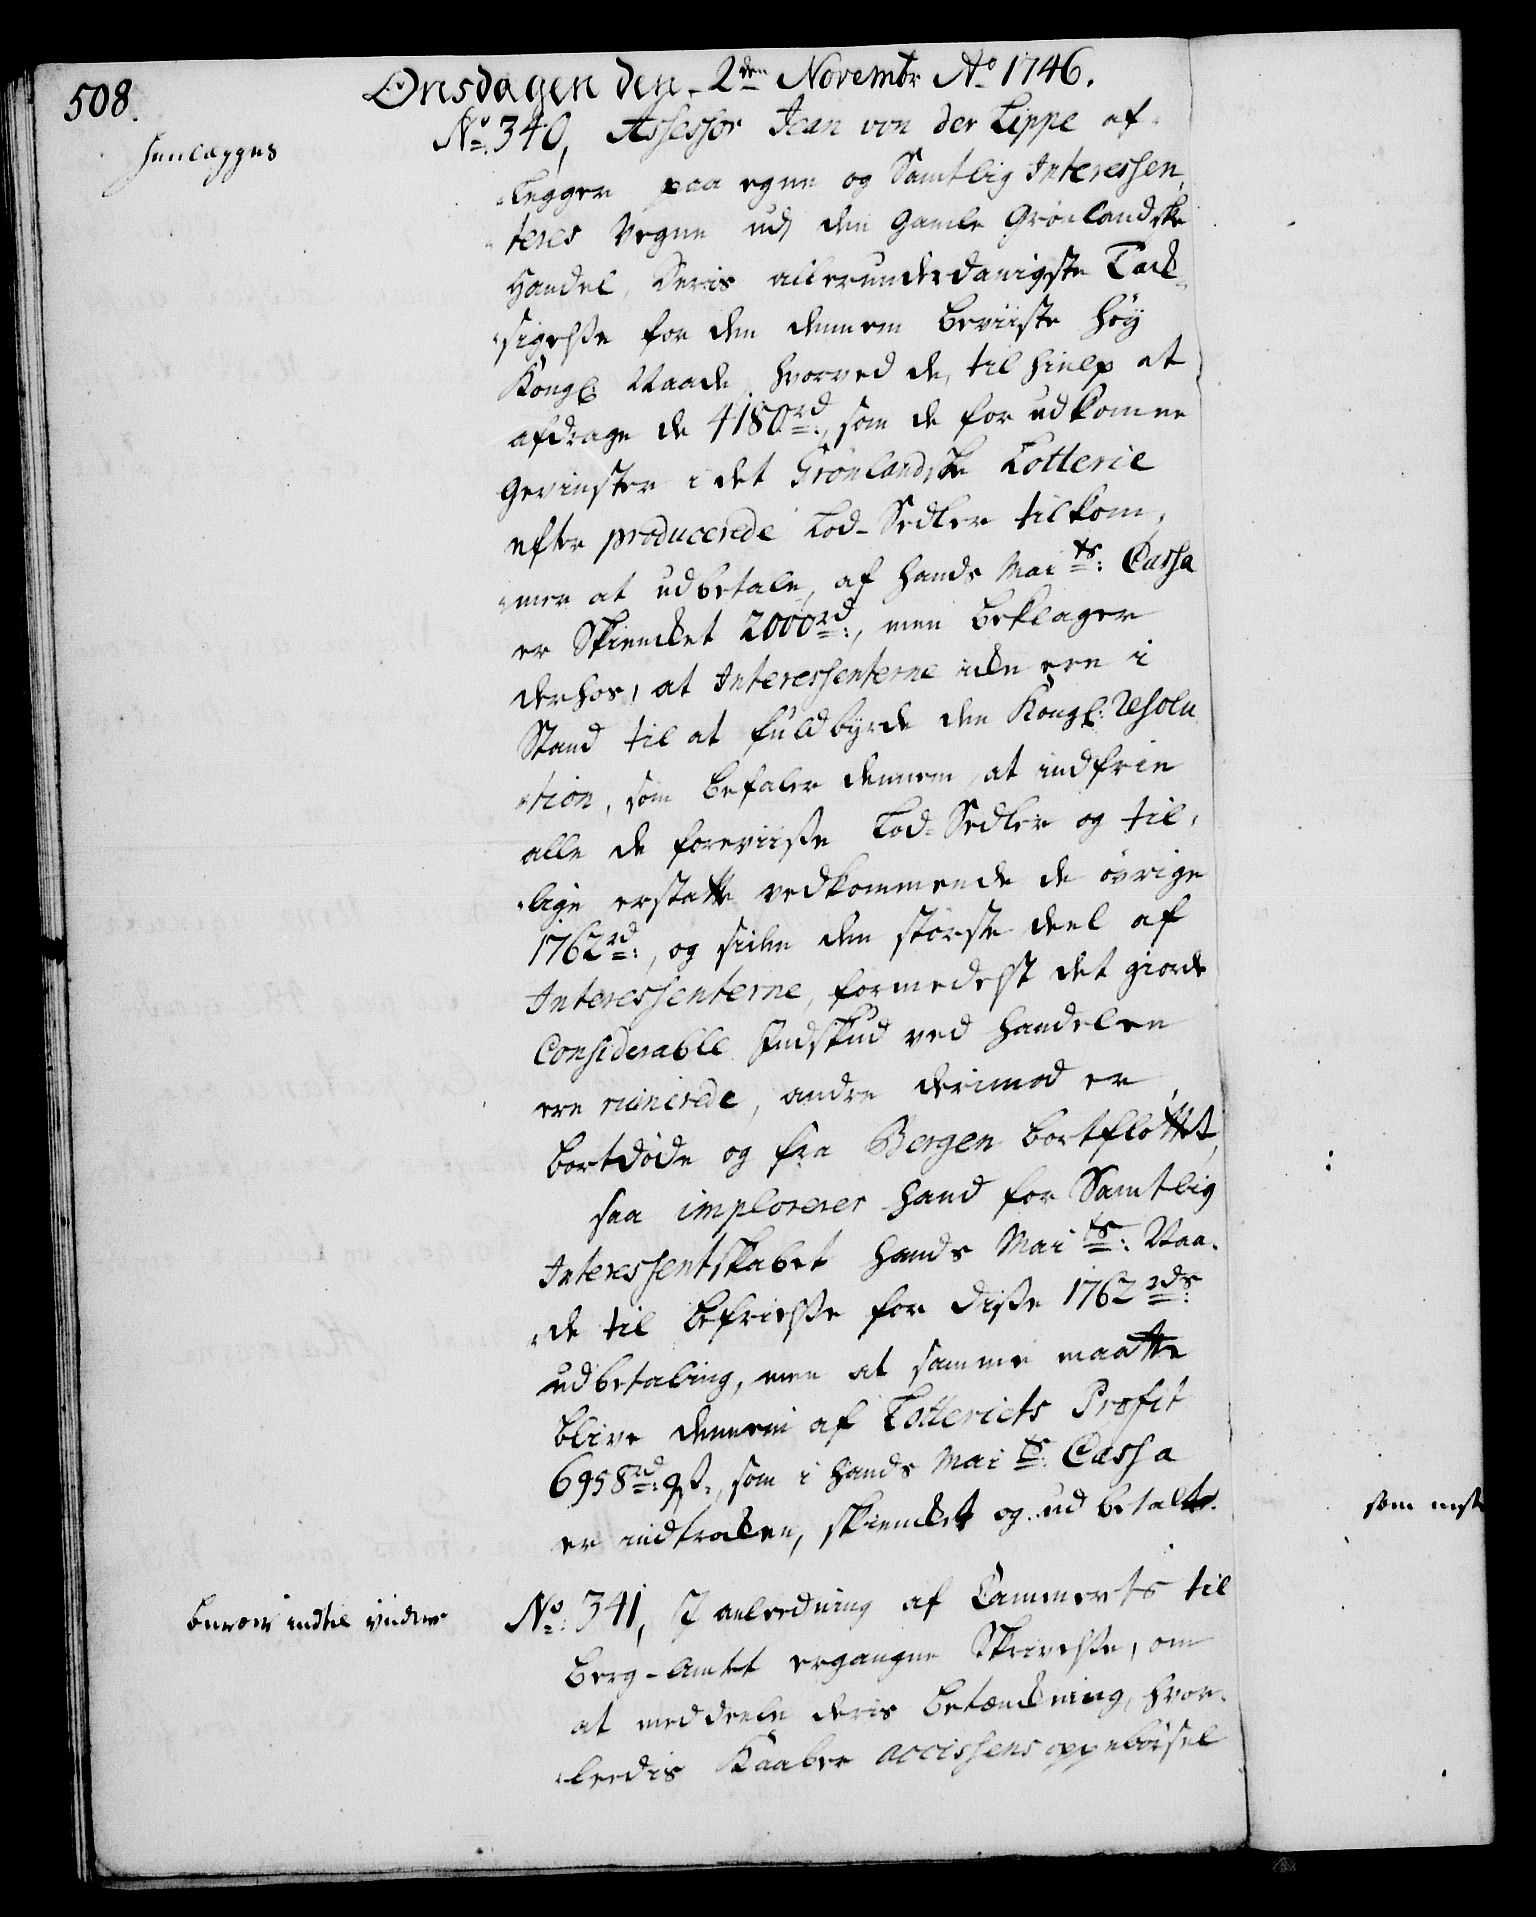 508.
Onsdagen den 2den Novembr Ao 1746.
henlægges
No. 340, Assessor Jean von der Lippe af-
legger paa egne og Samtlig Interessen-
teres Vegne udj den Gamle Grønlandske
Handel, deris allerunderdanigste Tack-
sigelsse for den dennem beviiste høy
Kongl: Naade, hvorved de, til hielp at
afdrage de 4180rd:, som de for udkomne
Gevinster i det Grønlandske Lotterie
efter producerede Lod-Sedler tilkom-
mer at udbetale, af hands Maits: Cassa
er Skiencket 2000rd:, men beklager
derhos, at Interessenterne icke ere i
Stand til at fuldbyrde den Kongl: Resolu
tion, som befaler dennem at indfrie
alle de foreviiste Lod-Sedler og til-
lige erstatte vedkommende de øvrige
1762rd:, og siden den største deel af
Interessenterne, formedelst det giorde
Considerable Indskud ved Handelen
ere ruinerede, andre derimod er
bortdøde og fra Bergen bortfløttet,
saa implorerer hand for Samtlig
Interessentskabet hands Maits: Naa-
de til befrielsse for disse 1762rds:
udbetaling, men at samme maatte
blive dennem af Lotteriets Profit
6958rd: 9s:, som i hands Maits: Cassa
er indtraken, skiencket og udbetalt.
som
beroer indtil videre
No: 341, I anledning af Cammerets til
Berg-Amtet ergangne Skrivelsse, om
at meddeele deris betænckning, hvor-
leedis Kaaber accissens oppebørsel